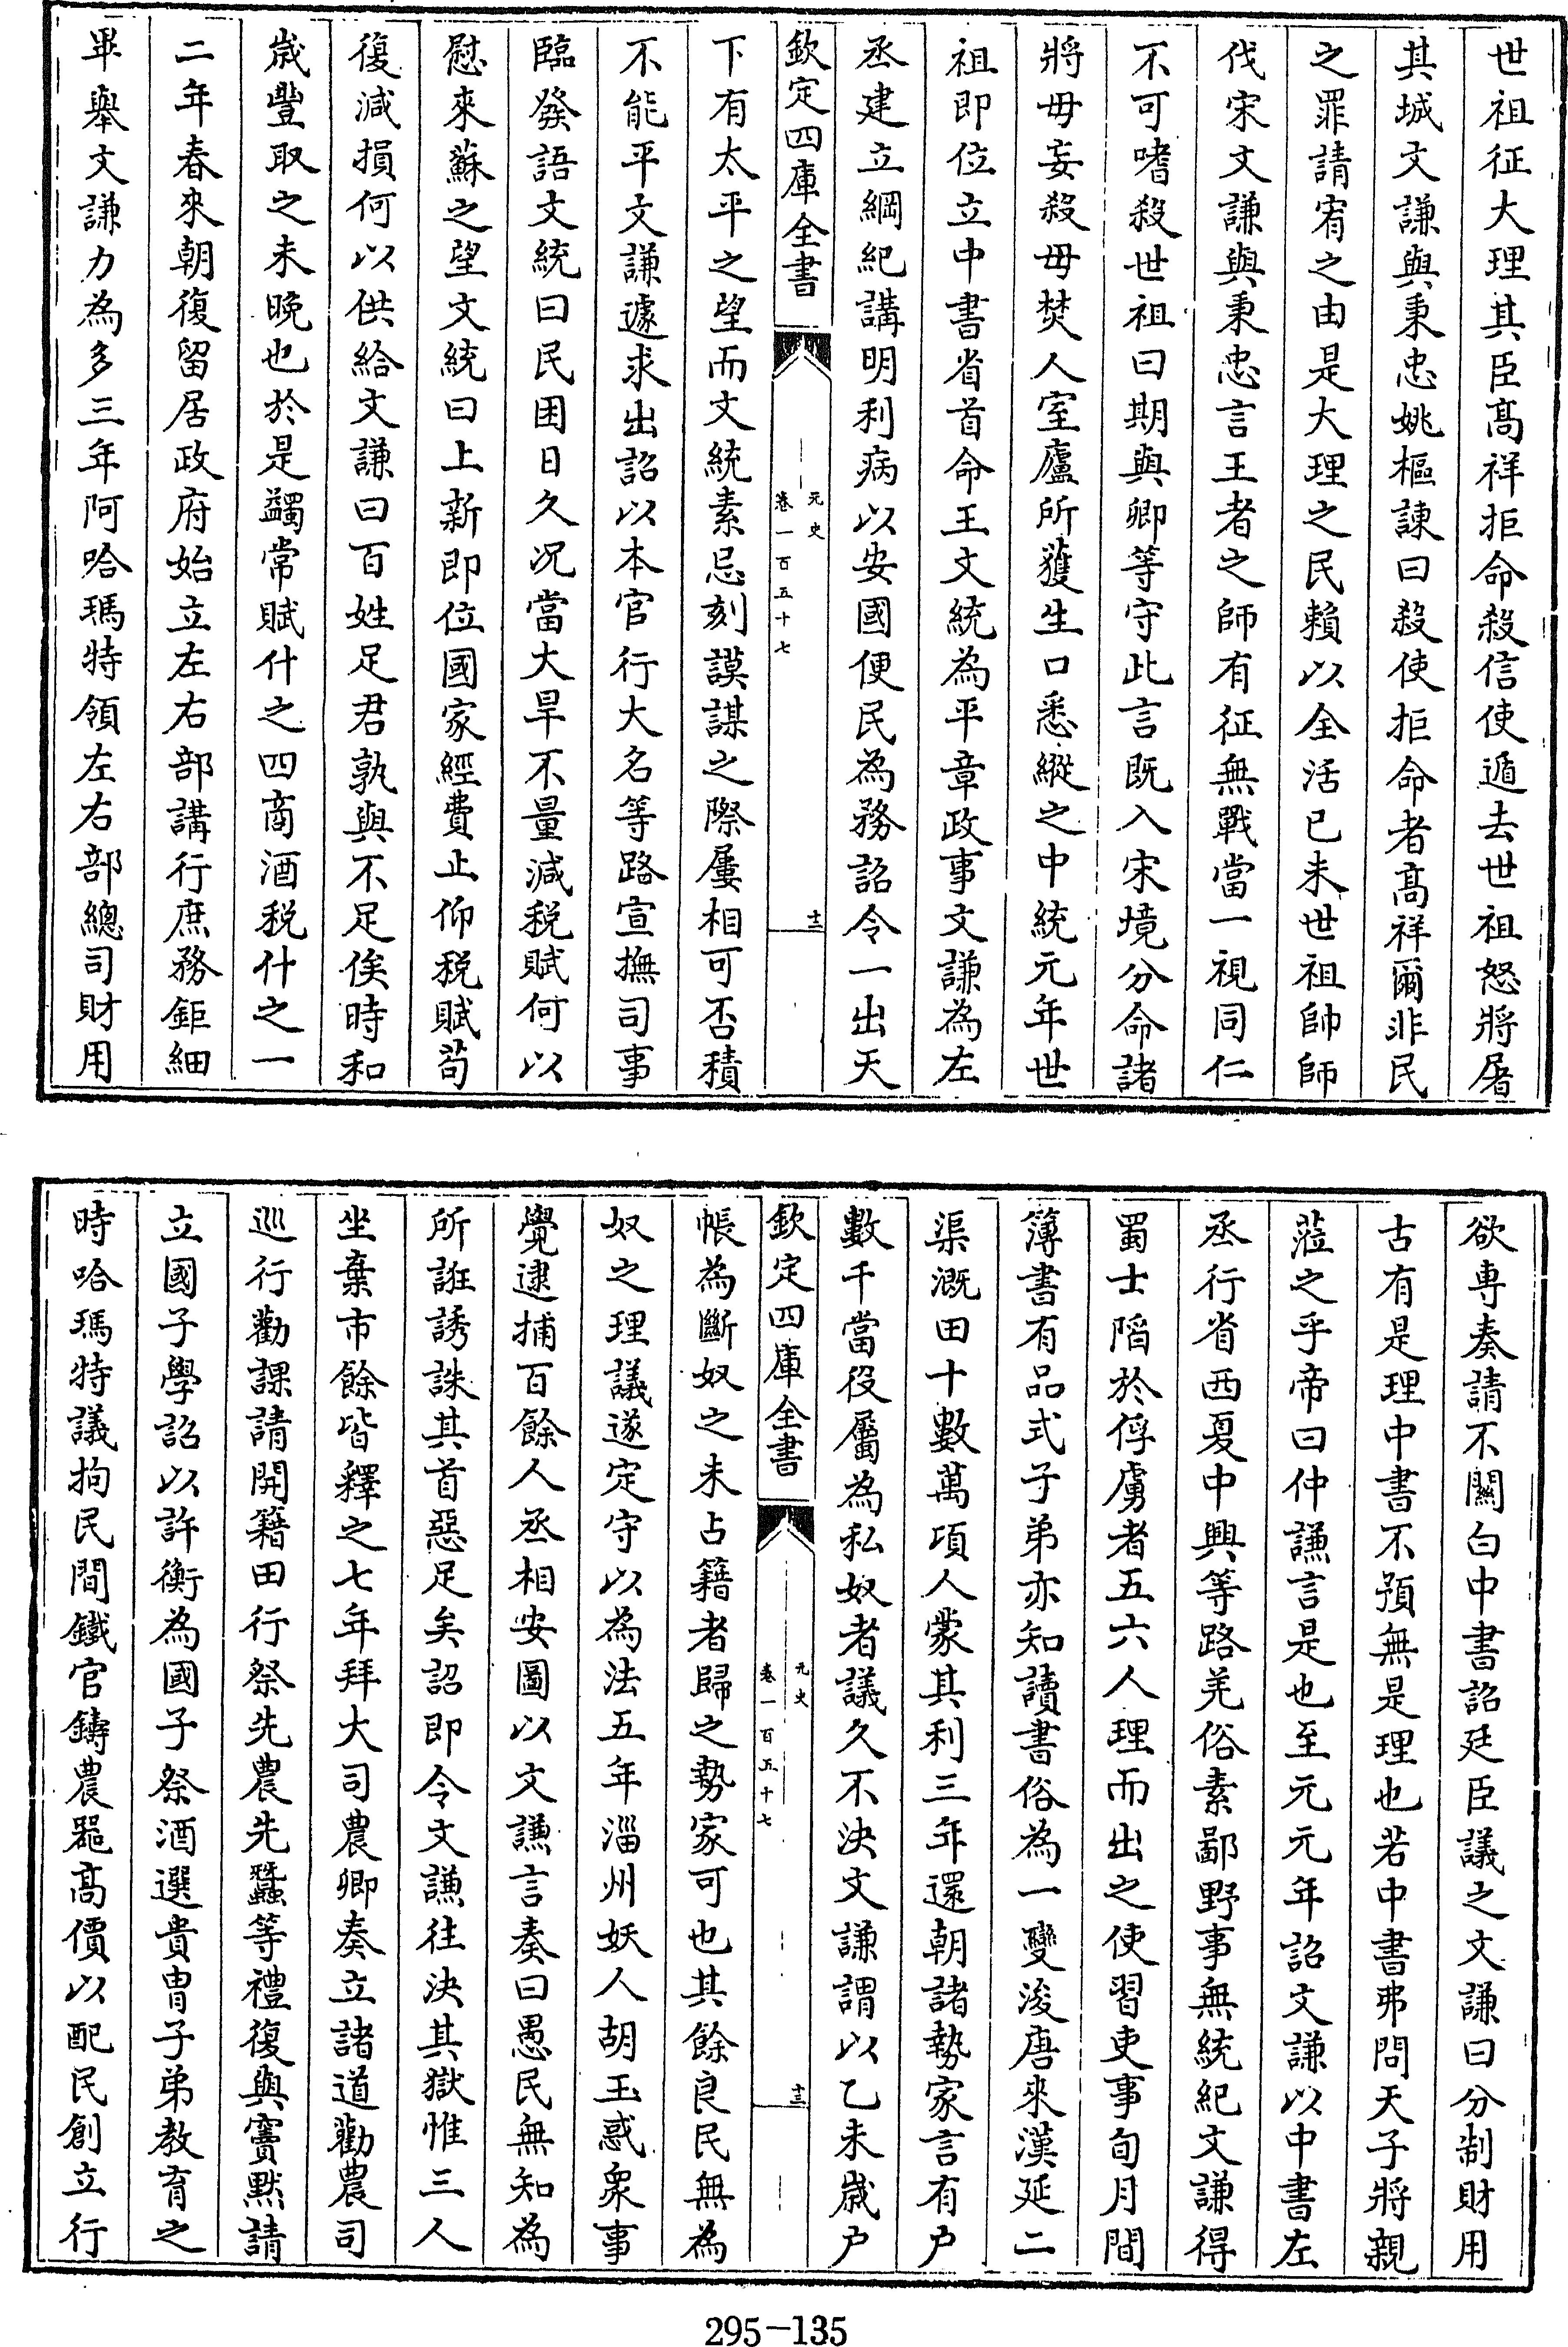 世祖征大理其臣髙祥拒命殺信使遁去世祖怒將屠
其城文謙與秉忠姚樞諌曰殺使拒命者髙祥爾非民
之罪請宥之由是大理之民賴以全活已未世祖帥師
伐宋文謙與秉忠言王者之師有征無戰當一視同仁
不可嗜殺世祖曰期與卿等守此言既入宋境分命諸
將毋妄殺毋焚人室廬所獲生口悉縱之中統元年世
祖即位立中書省首命王文統為平章政事文謙為左
丞建立綱紀講明利病以安國便民為務詔令一出天
欽定四庫全書
元史
卷一百五十七
十二
下有太平之望而文統素忌刻謨謀之際屢相可否積
不能平文謙遽求出詔以本官行大名等路宣撫司事
臨發語文統曰民困日久况當大旱不量減稅賦何以
慰來蘇之望文統曰上新即位國家經費止仰稅賦茍
復減損何以供給文謙曰百姓足君孰與不足俟時和
歲豐取之未晚也於是蠲常賦什之四商酒税什之一
二年春來朝復留居政府始立左右部講行庶務鉅細
畢舉文謙力為多三年阿哈瑪特領左右部總司財用
欲専奏請不闗白中書詔廷臣議之文謙曰分制財用
古有是理中書不預無是理也若中書弗問天子將親
蒞之乎帝曰仲謙言是也至元元年詔文謙以中書左
丞行省西夏中興等路羌俗素鄙野事無統紀文謙得
蜀士陷於俘虜者五六人理而出之使習吏事旬月間
簿書有品式子弟亦知讀書俗為一變浚唐來漢延二
渠溉田十數萬頃人蒙其利三年還朝諸勢家言有户
數千當役屬為私奴者議久不決文謙謂以乙未歲户
欽定四庫全書
元史
卷一百五十七
十三
帳為斷奴之未占籍者歸之勢家可也其餘良民無為
奴之理議遂定守以為法五年淄州妖人胡王惑衆事
覺逮捕百餘人丞相安圖以文謙言奏曰愚民無知為
所誑誘誅其首惡足矣詔即令文謙往決其獄惟三人
坐棄市餘皆釋之七年拜大司農卿奏立諸道勸農司
巡行勸課請開籍田行祭先農先蠶等禮復與竇黙請
立國子學詔以許衡為國子祭酒選貴胄子弟教育之
時哈瑪特議拘民間鐵官鑄農器髙價以配民創立行
295-135